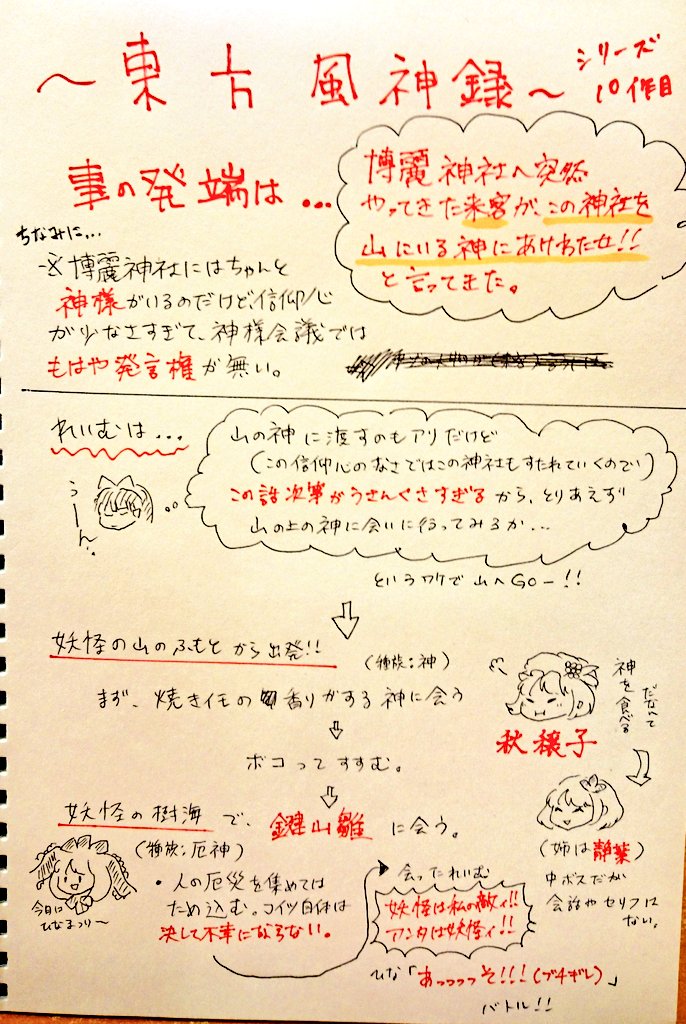 ～東方風神録～
シリーズ
10作目
事の発端は...
博麗神社へ突然
やってきた来客が、この神社を
山にいる神にあけわたせ!!
と言ってきた。
ちなみに...
※博麗神社にはちゃんと
神様がいるのだけど、信仰心
が少なさすぎて、神様会議では
もはや発言権が無い。
れいむは...
うーん...
山の神に渡すのもアリだけど
(この信仰心のなさではこの神社もすたれていくので)
この話次第がうさんくさすぎるから、とりあえず
山の上の神に会いに行ってみるか...
というワケで山へGOー!!
妖怪の山のふもとから出発!!
(種族:神)
まず、焼きイモの香りがする神に会う
秋穣子
神を食べる
だなんて
ボコってすすむ。
(姉は静葉)
中ボスだが
会話やセリフは
ない。
妖怪の樹海で、鍵山雛に会う。
(種族:厄神)
今日は
ひなまつり～
・人の厄災を集めては
ため込む。コイツ自体は
決して不幸にならない。
会ったれいむ
妖怪は私の敵ィ!!
アンタは妖怪ィ!!
ひな「あっっっっそ!!!(ブチギレ)」
バトル!!